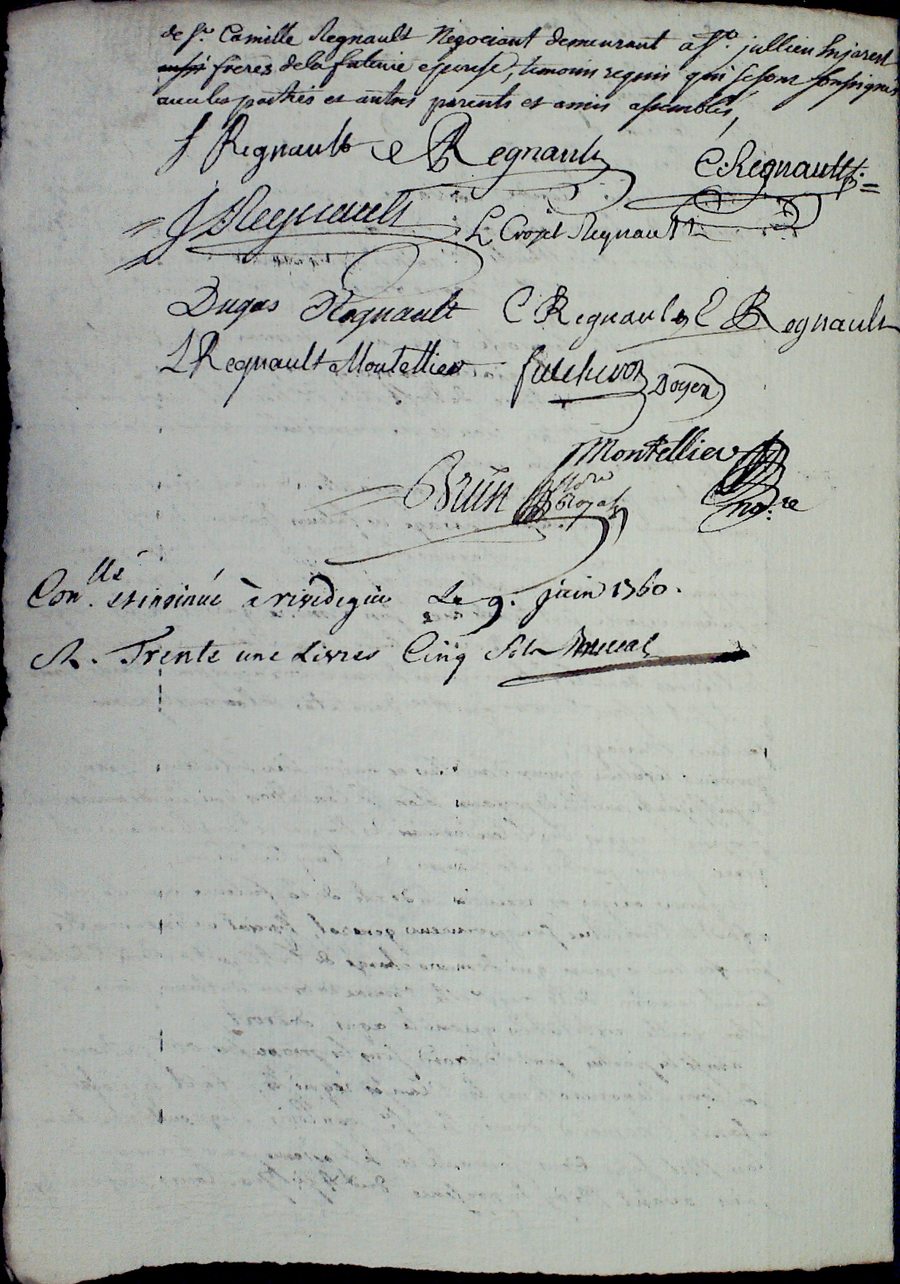 de Sr. Camille Regnault Négociant demeurant a St. jullien En jarest
aussi freres de la future epouse, temoins requis qui se sont soussignés
avec les parties et autres parents et amis assemblés,
J Regnault e Regnault C. Regnault.
J Regnault L Crozet Regnault
Dugas Regnault C Regnault E Regnault
L Regnault Montellier Doyen
Montellier
Brun Royal no.re
Con.llé et insinué à rivedegier Le 9. juin 1760.
R. Trente une Livres Cinq sols